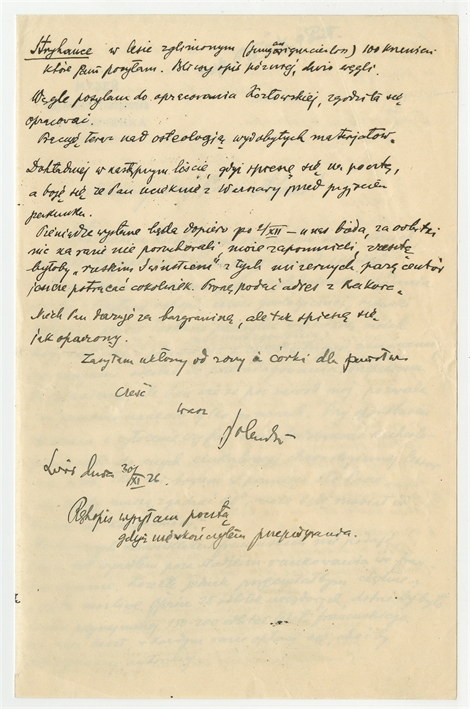 Stryhańce w lesie zglinionym 100 krzemieni
które Panu posyłam. Bliższy opis później, dużo węgli.
Węgle posyłam do opracowania Kozłowskiej, zgodziła się
opracować.
Pracuję teraz nad osteologią wydobytych materjałów.
Dokładniej w następnym liście, gdyż spieszę się na pocztę,
a boję się że Pan ucieknie z Warszawy przed
Pieniądze wysłane będą dopiero po 2/XII – u nas bieda, za
nic na razie nie moje zapomniały,
byłoby „ruskim " z tych mizernych parę centów
jeszcze potrącać cokolwiek. Proszę podać adres z
Niech Pan daruje za bazgraninę, ale tak spieszę się
jak oparzony.
Zasyłam ukłony od żony i córki dla Państwa
Cześć
Wasz
Lwów dnia 30/XI 26.
Rękopis wysyłam pocztą
gdyż nie skończyłem przepisywania.